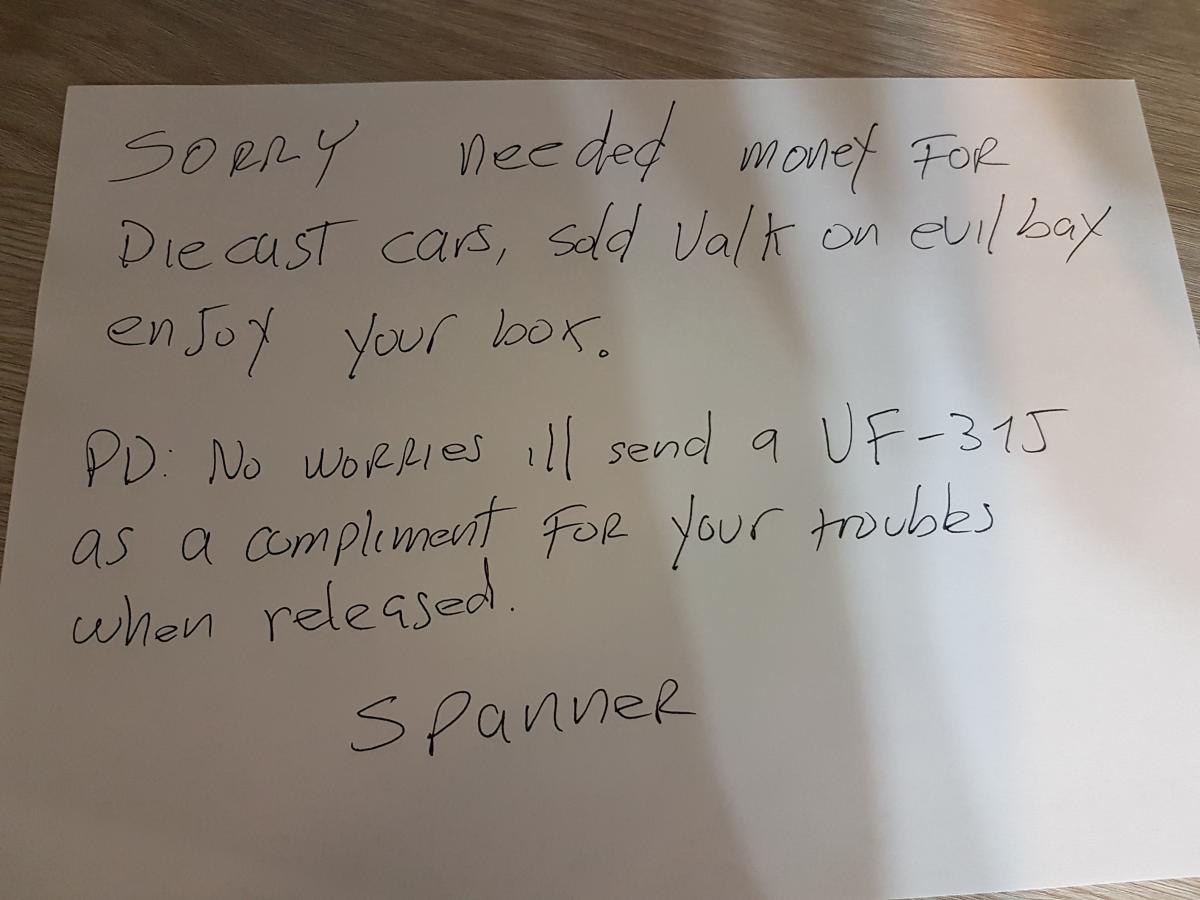 SORRY needed money FOR
Diecast cars, sold Valk on evilbay
enjoy your box.
PD: No WORRIES ill send a UF-315
as a compliment FOR your troubles
when released.
SPanneR